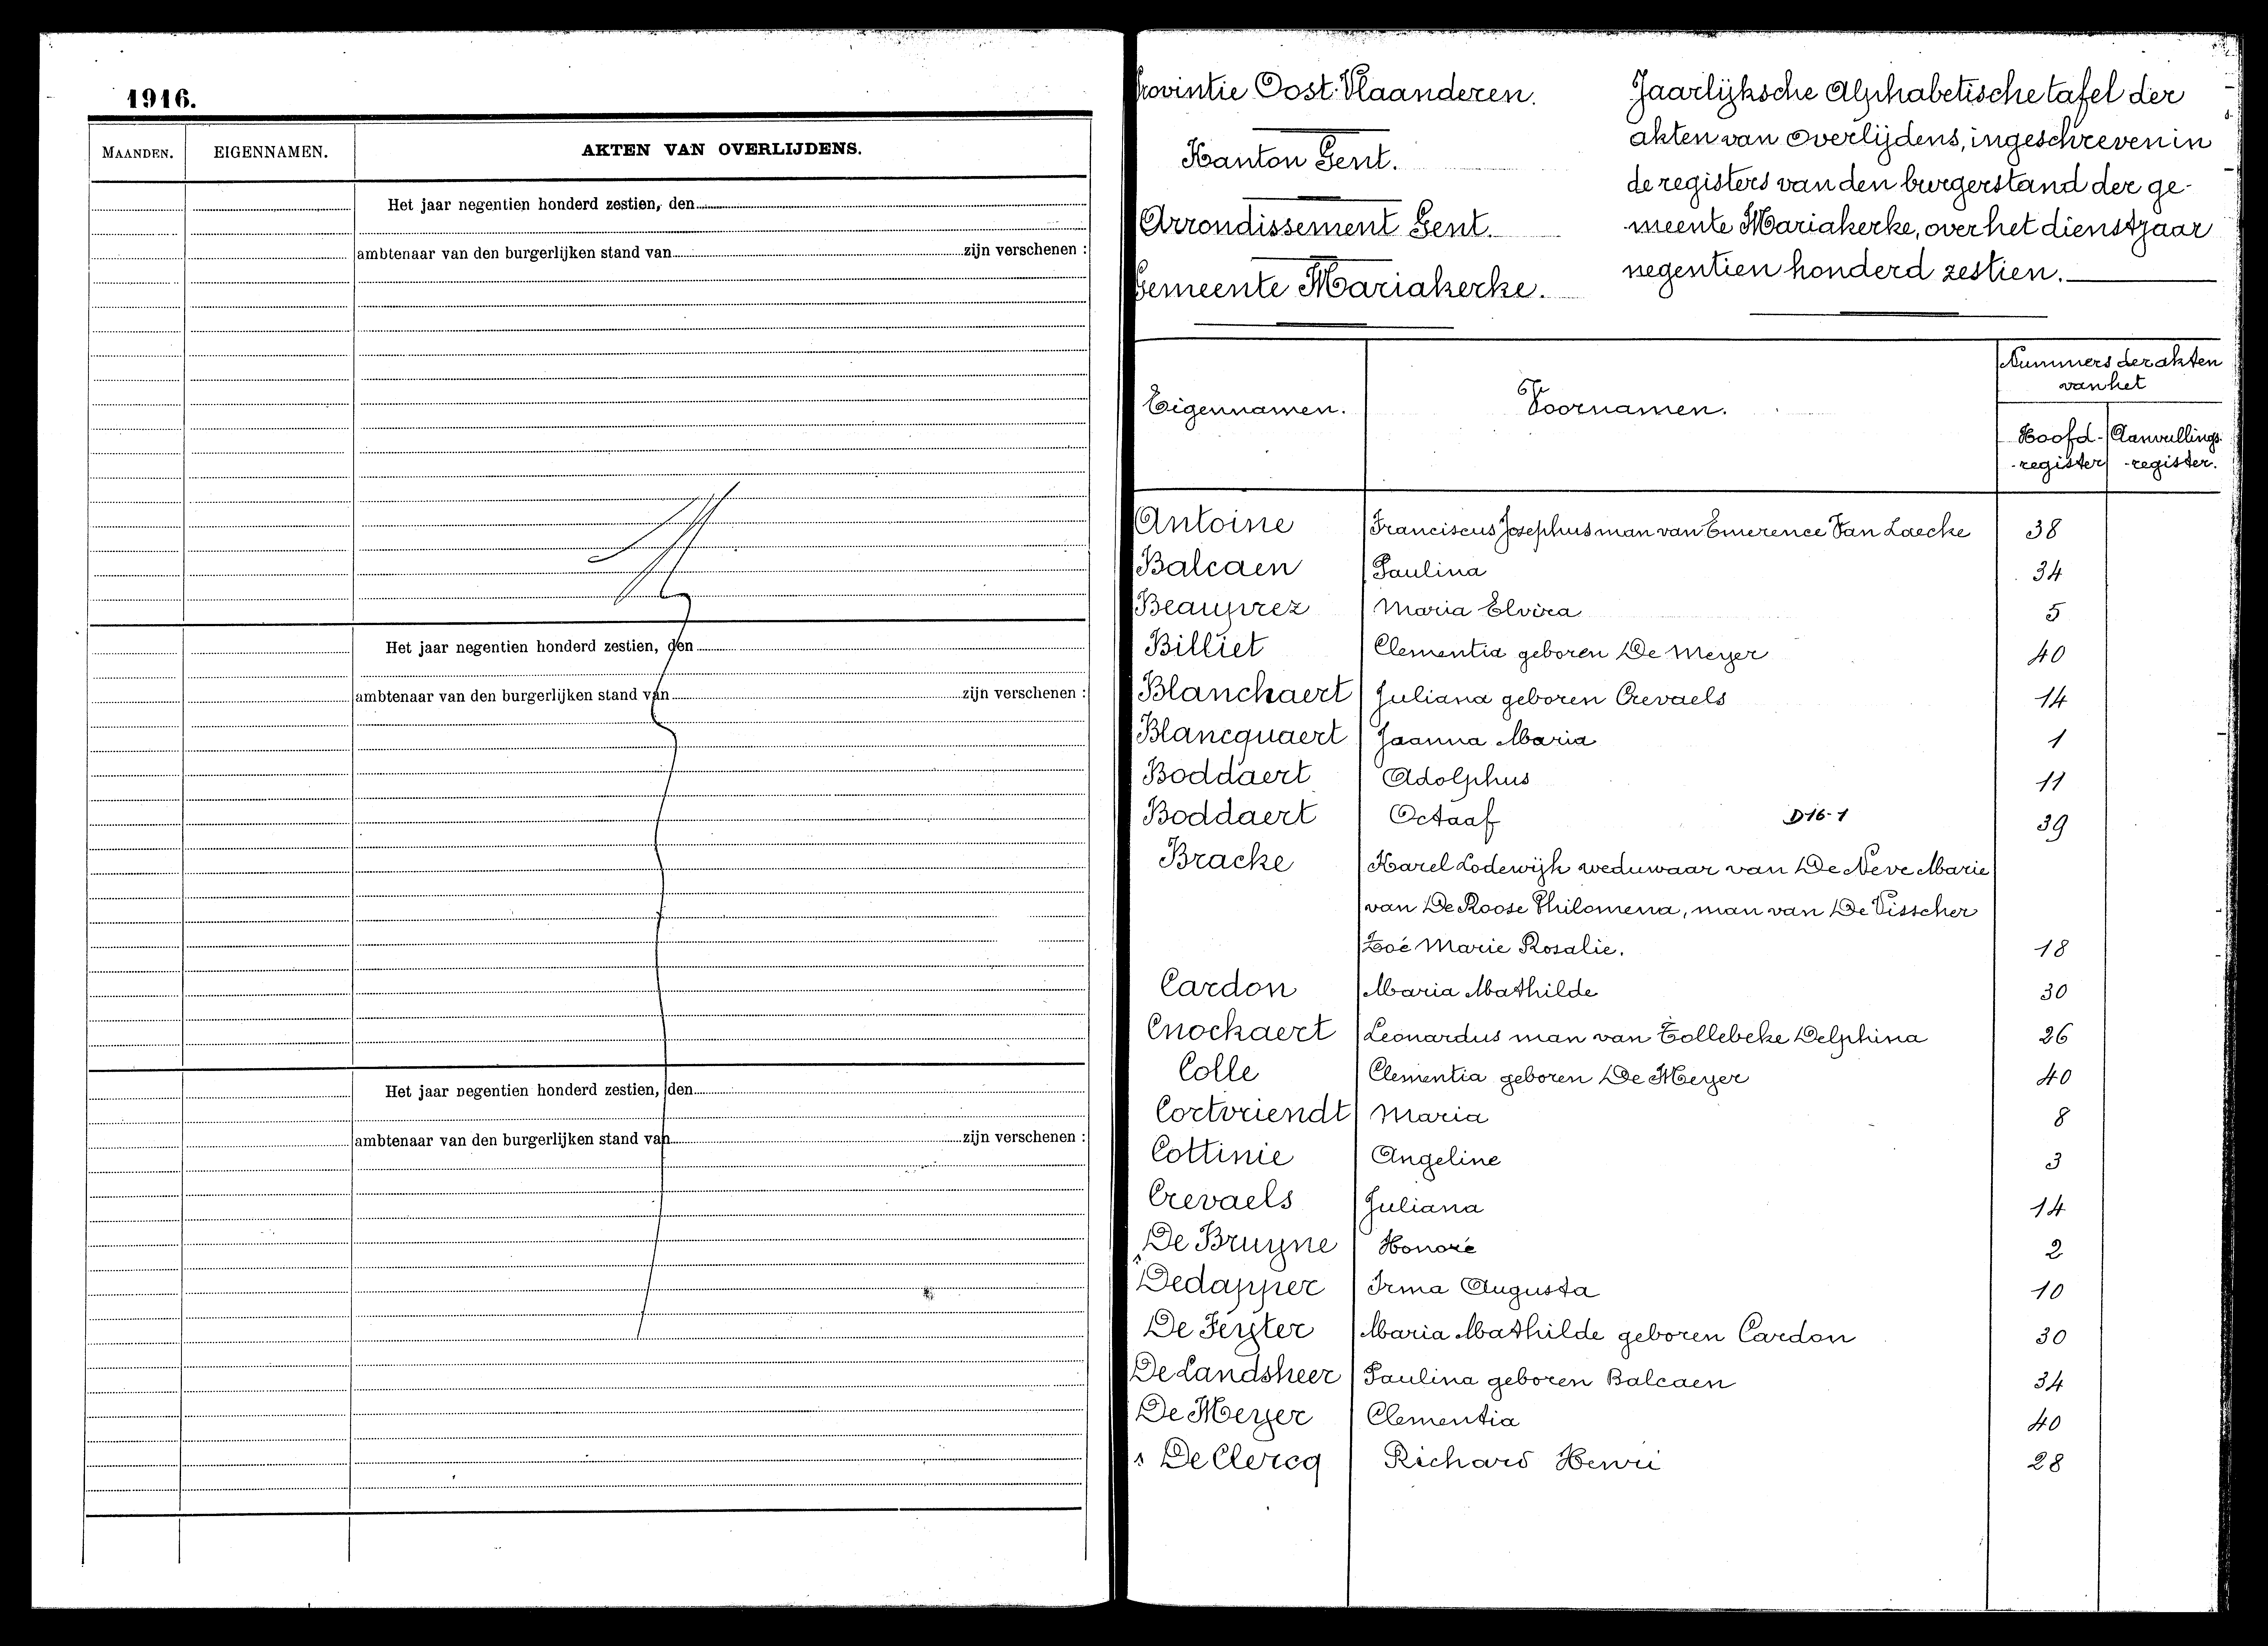 1916.
MAANDEN. EIGENNAMEN. AKTEN VAN OVERLIJDENS.
Het jaar negentien honderd zestien, den
ambtenaar van den burgerlijken stand van zijn verschenen :
Het jaar negentien honderd zestien, den
ambtenaar van den burgerlijken stand van zijn verschenen :
Het jaar negentien honderd zestien, den
ambtenaar van den burgerlijken stand van zijn verschenen :
Provintie Oost-Vlaanderen.
Kanton Gent.
Arrondissement Gent.
Gemeente Mariakerke.
Jaarlijksche Alphabetische tafel der
akten van overlijdens, ingeschreven in
de registers van den burgerstand der ge-
meente Mariakerke, over het dienstjaar
negentien honderd zestien.
Eigennamen. Voornamen. Nummers der akten
van het
Hoofd- Aanvullings
-register -register.
Antoine Franciscus Josephus man van Emerence Van Laecke 38
Balcaen Paulina 34
Beauprez Maria Elvira 5
Billiet Clementia geboren De Meyer 40
Blanchaert Juliana geboren Crevaels 14
Blancquaert Joanna Maria 1
Boddaert Adolphus 11
Boddaert Octaaf D16-1 39
Bracke Karel Lodewijk weduwaar van De Neve Marie
van De Roose Philomena, man van De Visscher
Zoé Marie Rosalie. 18
Cardon Maria Mathilde 30
Cnockaert Leonardus man van Tollebeke Delphina 26
Colle Clementia geboren De Meyer 40
Cortvriendt Maria 8
Cottinie Angeline 3
Crevaels Juliana 14
De Bruyne Honoré 2
Dedapper Irma Augusta 10
De Feyter Maria Mathilde geboren Cardon 30
De Landsheer Paulina geboren Balcaen 34
De Meyer Clementia 40
De Clercq Richard Henri 28